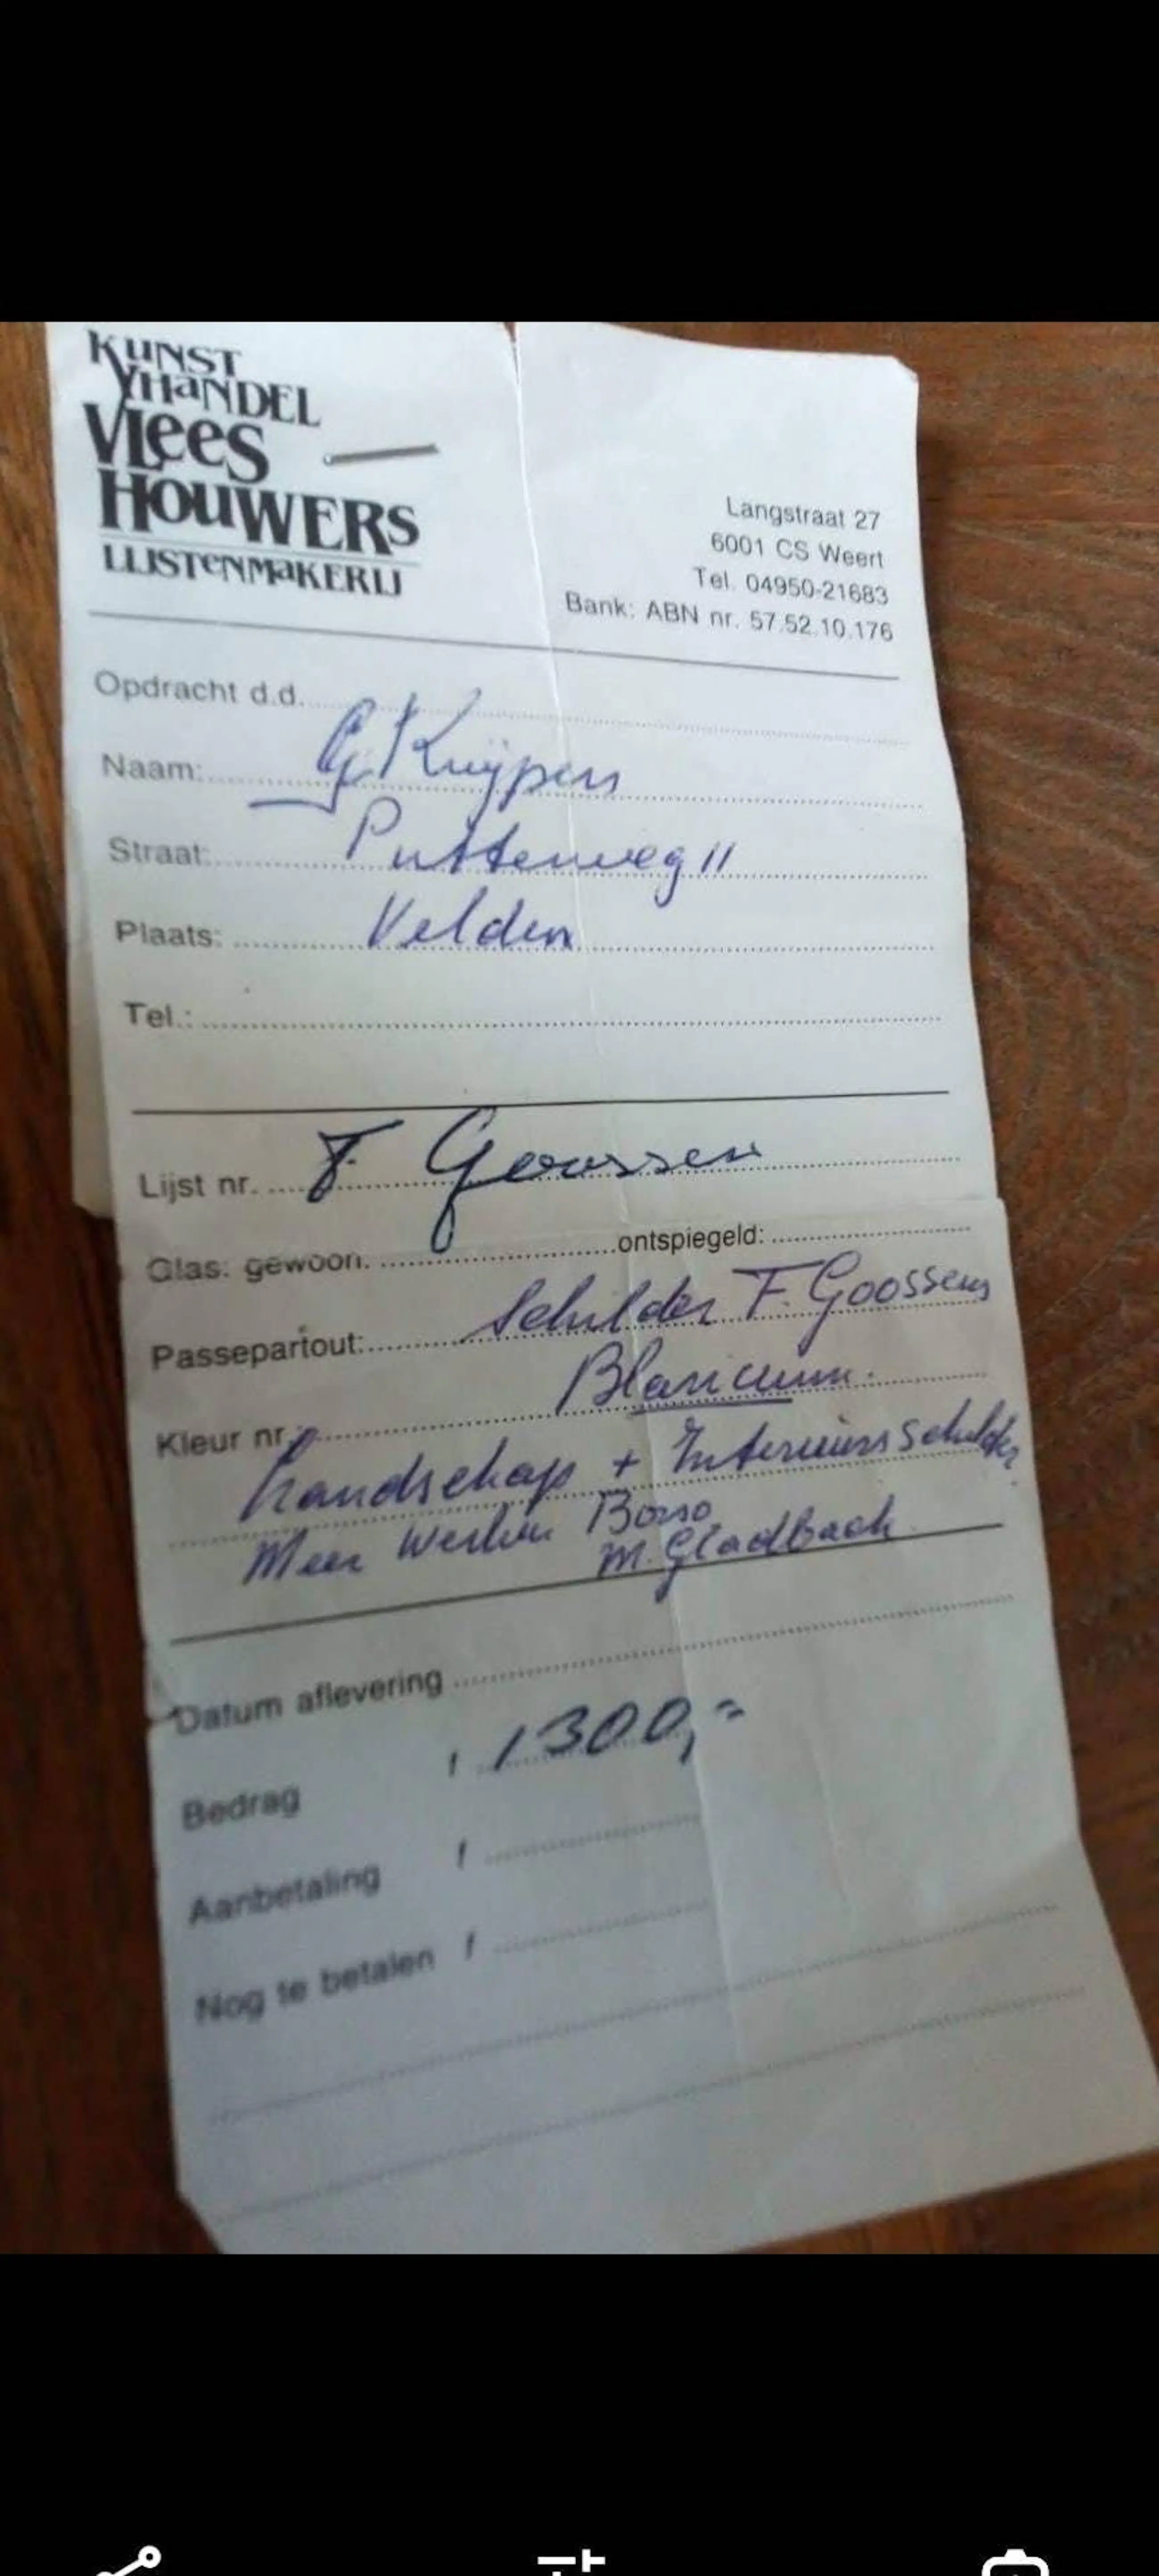 KUNST
HANDEL
Vlees
HOUWERS
LIJSTENMAKERIJ
Langstraat 27
6001 CS Weert
Tel. 04950-21683
Bank: ABN nr. 57.52.10.176
Opdracht d.d.
Naam: G Kuÿpers
Straat: Puttenweg 11
Plaats: Velden
Tel.:
Lijst nr. F. Goossen
Glas: gewoon. ontspiegeld:
Passepartout: Schilder F. Goossens
Kleur nr. Blaricum.
Landschap + Interieurs Schilder
Meer werken Borso
M. Gladbach
Datum aflevering
Bedrag f 1300,=
Aanbetaling f
Nog te betalen f